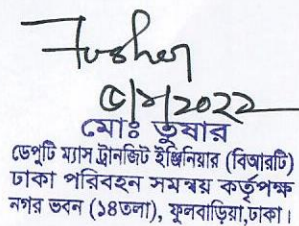 Tusher
মোঃ তুষার
ডেপুটি ম্যাস ট্রানজিট ইঞ্জিনিয়ার (বিআরটি)
ঢাকা পরিবহন সমন্বয় কর্তৃপক্ষ
নগর ভবন (১৪তলা), ফুলবাড়িয়া,ঢাকা।